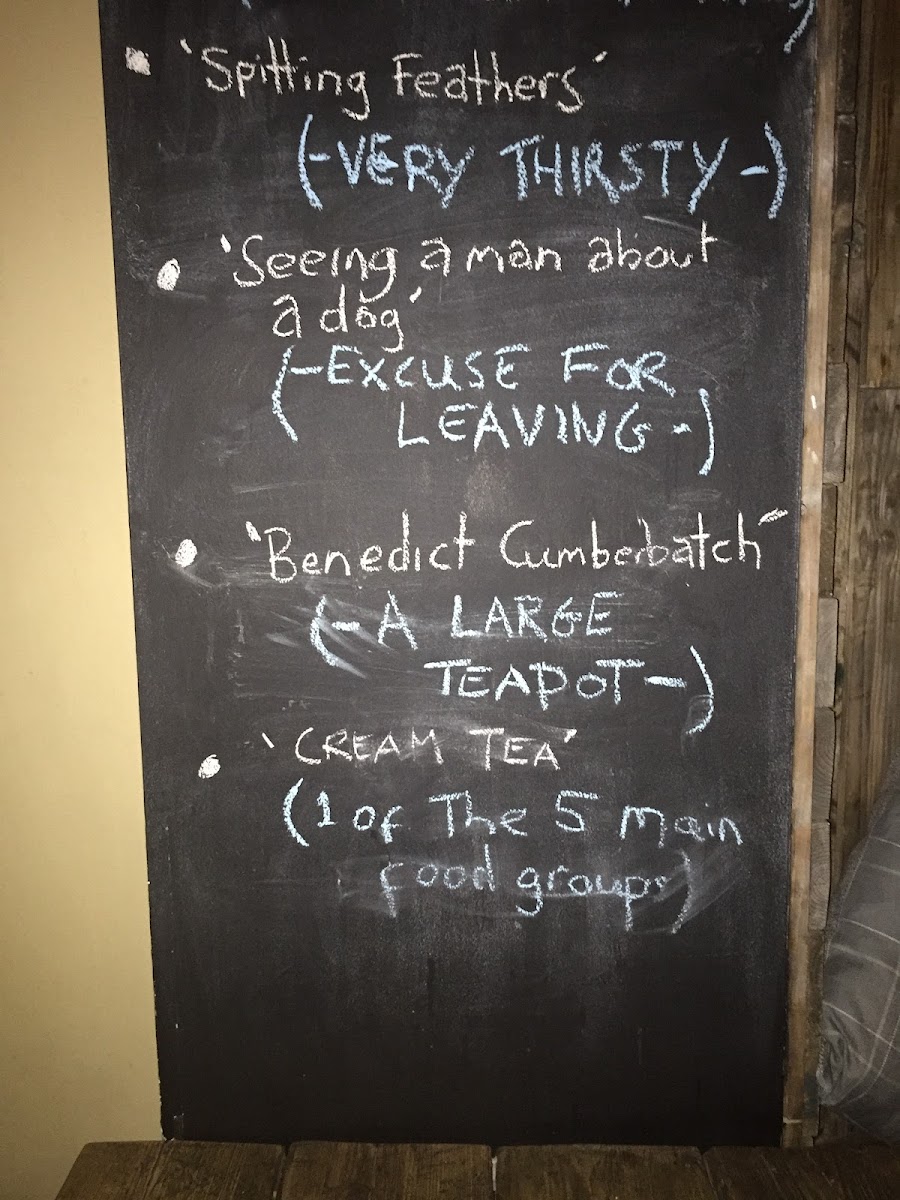 • 'Spitting Feathers'
(-VERY THIRSTY-)
• 'Seeing a man about
a dog'
(-EXCUSE FOR
LEAVING-)
• 'Benedict Cumberbatch'
(-A LARGE
TEAPOT-)
• 'CREAM TEA'
(1 of The 5 main
food groups)